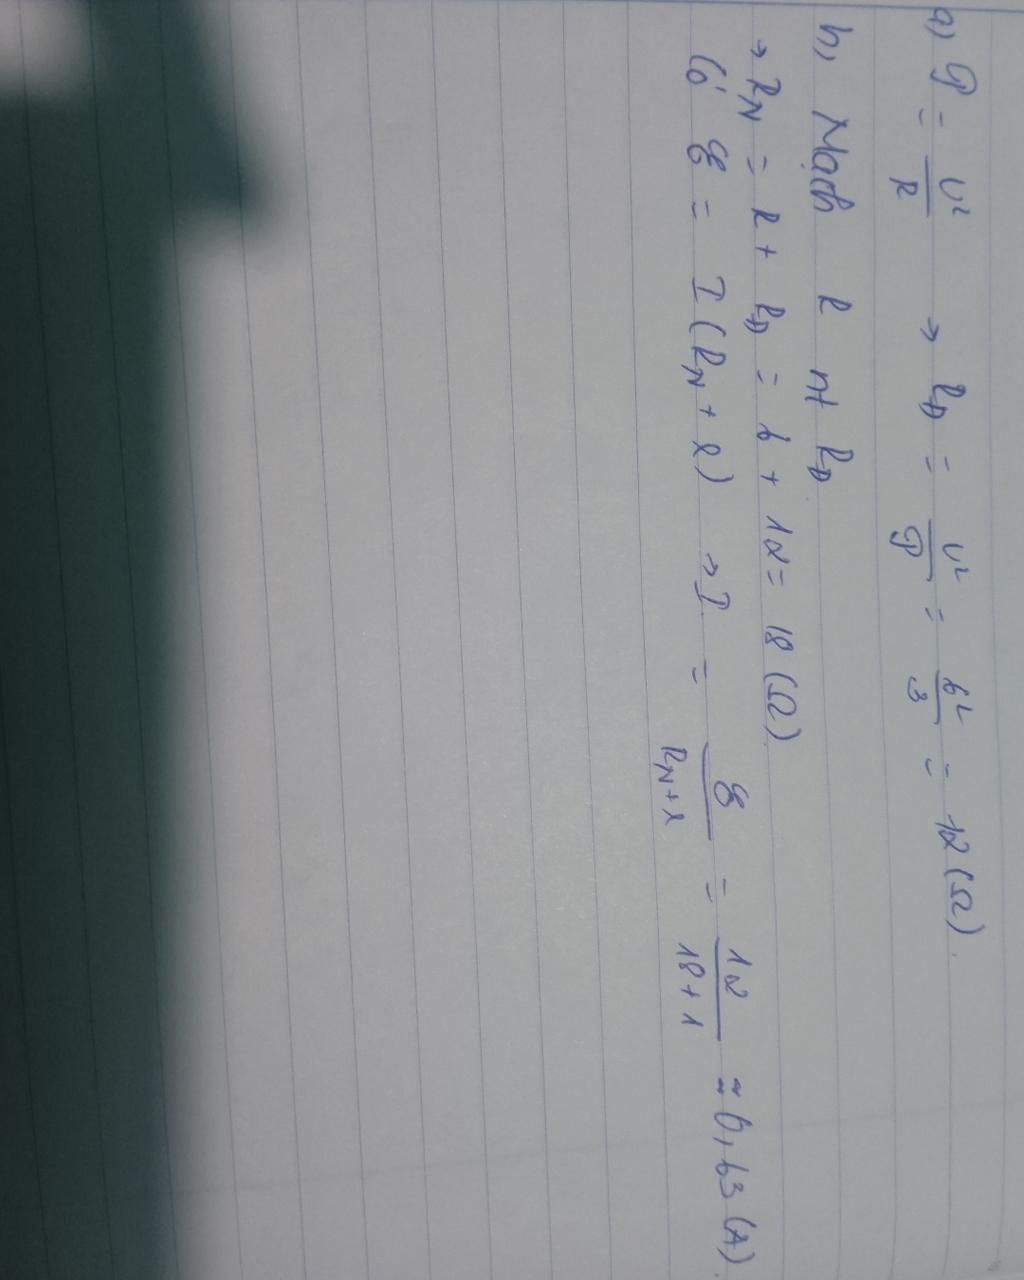 a) P = U²/R → R_Đ = U²/P = 6²/3 = 12 (Ω).
b) Mạch R nt R_Đ
→ R_N = R + R_Đ = 6 + 12 = 18 (Ω)
Có ℰ = I (R_N + r) → I = ℰ/(R_N + r) = 12/(18 + 1) ≈ 0,63 (A).